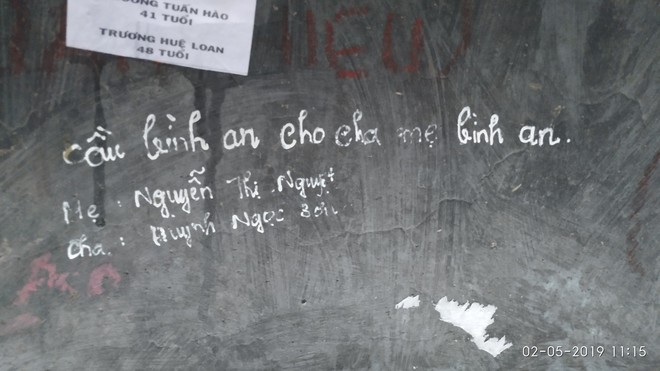 ƯƠNG TUẤN HÀO
41 TUỔI
TRƯƠNG HUỆ LOAN
48 TUỔI
HIẾU
cầu bình an cho cha mẹ bình an.
Mẹ : Nguyễn Thị Nguyệt
cha : Huỳnh Ngọc Sơn
02-05-2019 11:15